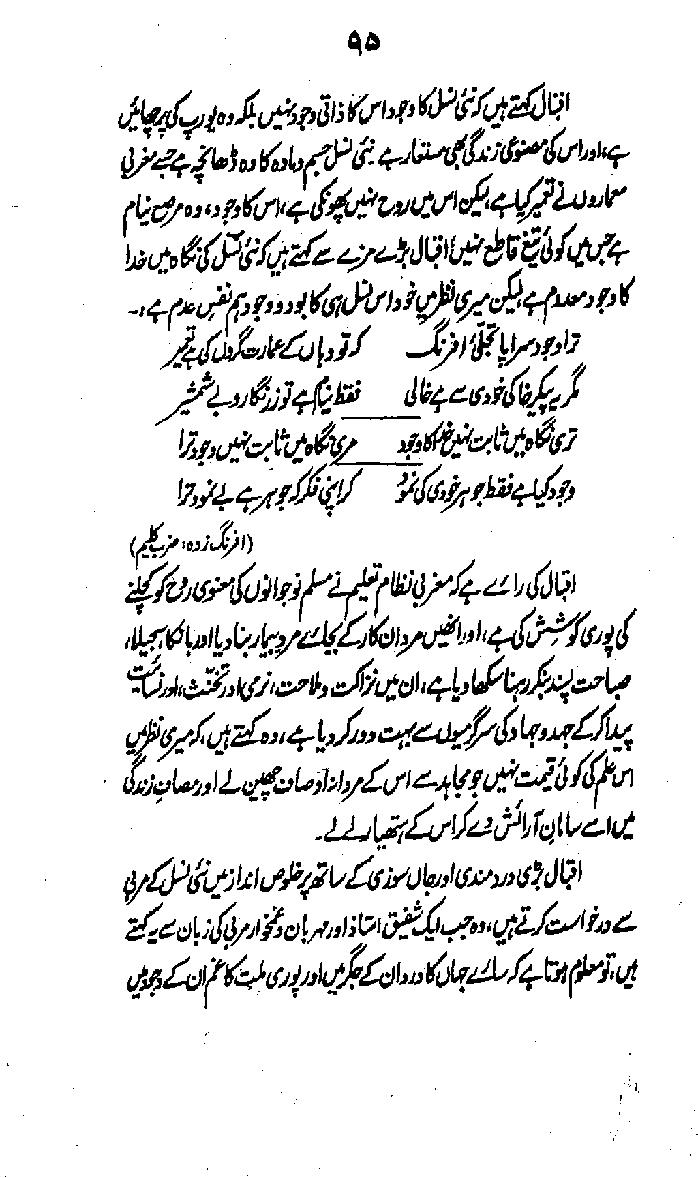 ۹۵
اقبال کہتے ہیں کہ نئی نسل کا وجود اس کا ذاتی وجود نہیں بلکہ وہ یورپ کی پرچھائیں
ہے، اور اس کی مصنوعی زندگی بھی مستعار ہے نئی نسل جسم و مادہ کا وہ ڈھانچہ ہے جسے مغربی
معماروں نے تعمیر کیا ہے، لیکن اس میں روح نہیں پھونکی ہے، اس کا وجود، وہ مرصع نیام
ہے جس میں کوئی تیغ قاطع نہیں! اقبال بڑے مزے سے کہتے ہیں کہ نئی نسل کی نگاہ میں خدا
کا وجود معدوم ہے، لیکن میری نظر میں خود اس نسل ہی کا بود و وجود ہم نفس عدم ہے :۔
ترا وجود سراپا تجلّیٔ افرنگ کہ تو وہاں کے عمارت گروں کی ہے تعمیر
مگر یہ پیکر خاکی خودی سے ہے خالی فقط نیام ہے تو زر نگار و بے شمشیر
تری نگاہ میں ثابت نہیں خدا کا وجود مری نگاہ میں ثابت نہیں وجود ترا
وجود کیا ہے فقط جوہر خودی کی نمود کر اپنی فکر کہ جوہر ہے بے نمود ترا
(افرنگ زدہ: ضرب کلیم)
اقبال کی رائے ہے کہ مغربی نظام تعلیم نے مسلم نوجوانوں کی معنوی روح کو کچلنے
کی پوری کوشش کی ہے، اور انھیں مردان کار کے بجائے مرد بیمار بنا دیا اور بانکا سجیلا،
صباحت پسند بنکر رہنا سکھا دیا ہے، ان میں نزاکت و ملاحت، نرمی اور تخنّث، اور نسائیت
پیدا کر کے جہد و جہاد کی سرگرمیوں سے بہت دور کر دیا ہے، وہ کہتے ہیں، کہ میری نظر میں
اس علم کی کوئی قیمت نہیں جو مجاہد سے اس کے مردانہ اوصاف چھین لے اور مصاف زندگی
میں اسے سامان آرائش دے کر اس کے ہتھیار لے لے۔
اقبال بڑی دردمندی اور جاں سوزی کے ساتھ پر خلوص انداز میں نئی نسل کے مربی
سے درخواست کرتے ہیں، وہ جب ایک شفیق استاذ اور مہربان و غمخوار مربی کی زبان سے یہ کہتے
ہیں، تو معلوم ہوتا ہے کہ سارے جہاں کا درد ان کے جگر میں اور پوری ملت کا غم ان کے وجود میں